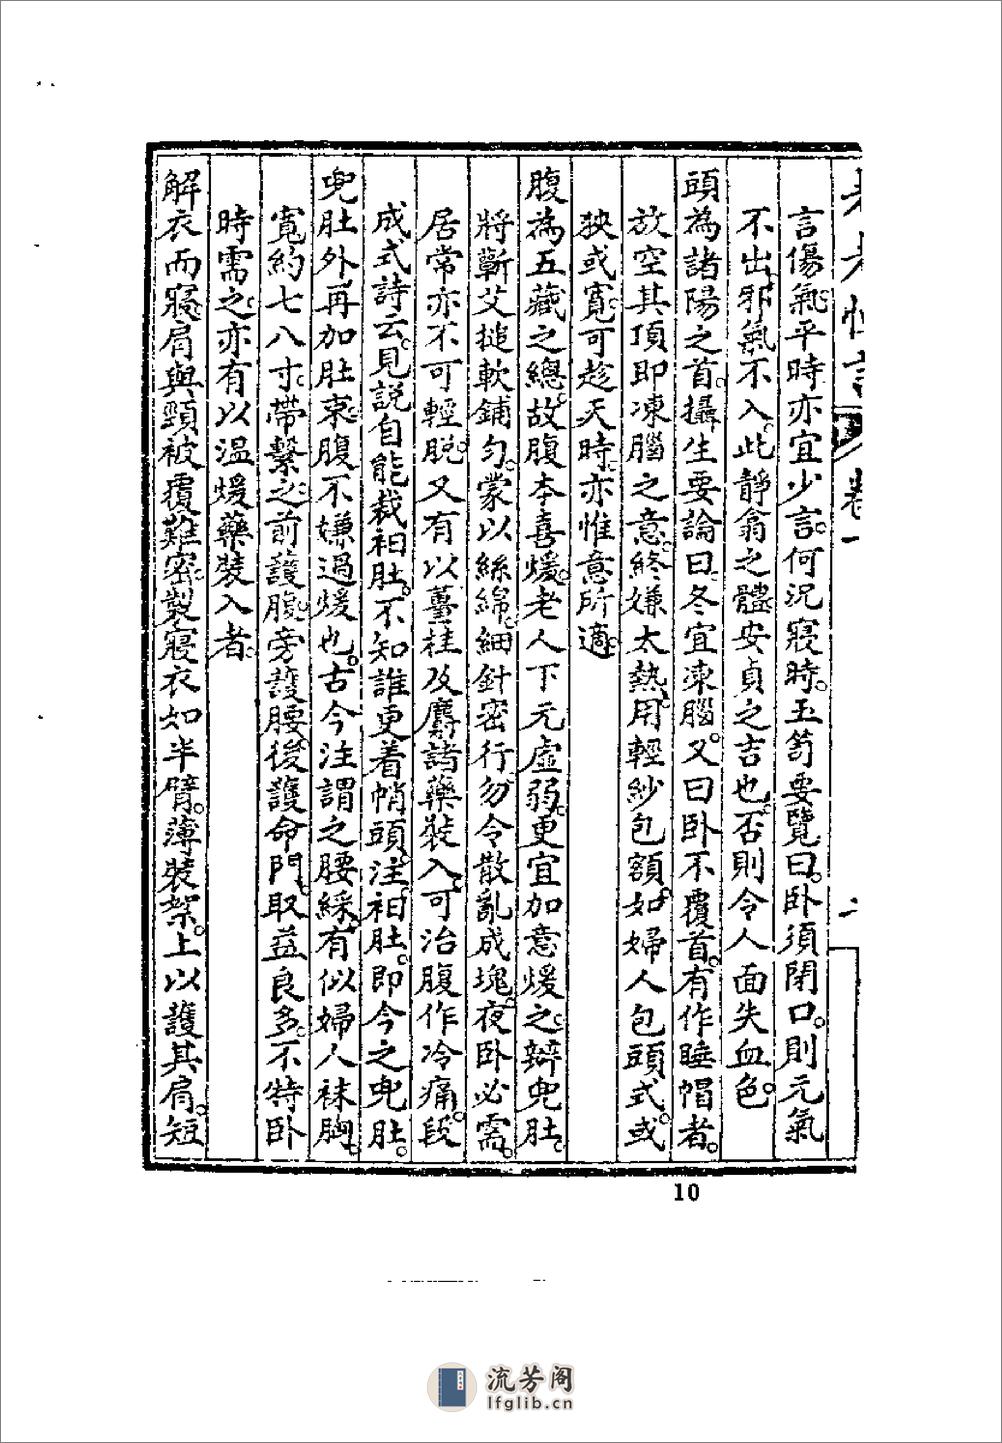 老老恒言 卷一 二
言傷氣。平時亦宜少言。何況寢時。玉笥要覽曰。卧須閉口。則元氣
不出。邪氣不入。此靜翕之體。安貞之吉也。否則令人面失血色。
頭為諸陽之首。攝生要論曰。冬宜凍腦。又曰卧不覆首。有作睡帽者。
放空其頂即凍腦之意。終嫌太熱。用輕紗包額。如婦人包頭式。或
狹或寬。可趁天時。亦惟意所適。
腹為五藏之總。故腹本喜煖。老人下元虛弱。更宜加意煖之。辦兜肚。
將蘄艾搥軟鋪勻。蒙以絲綿。細針密行。勿令散亂成塊。夜卧必需。
居常亦不可輕脫。又有以薑桂及麝諸藥裝入。可治腹作冷痛。段
成式詩云。見說自能裁袙肚。不知誰更着帩頭。注。袙肚。即今之兜肚。
兜肚外再加肚束。腹不嫌過煖也。古今注謂之腰綵。有似婦人袜胸。
寬約七八寸。帶繫之。前護腹。旁護腰。後護命門。取益良多。不特卧
時需之。亦有以溫煖藥裝入者。
解衣而寢。肩與頸被覆難密。製寢衣如半臂。薄裝絮。上以護其肩。短
10
流芳阁
lfglib.cn